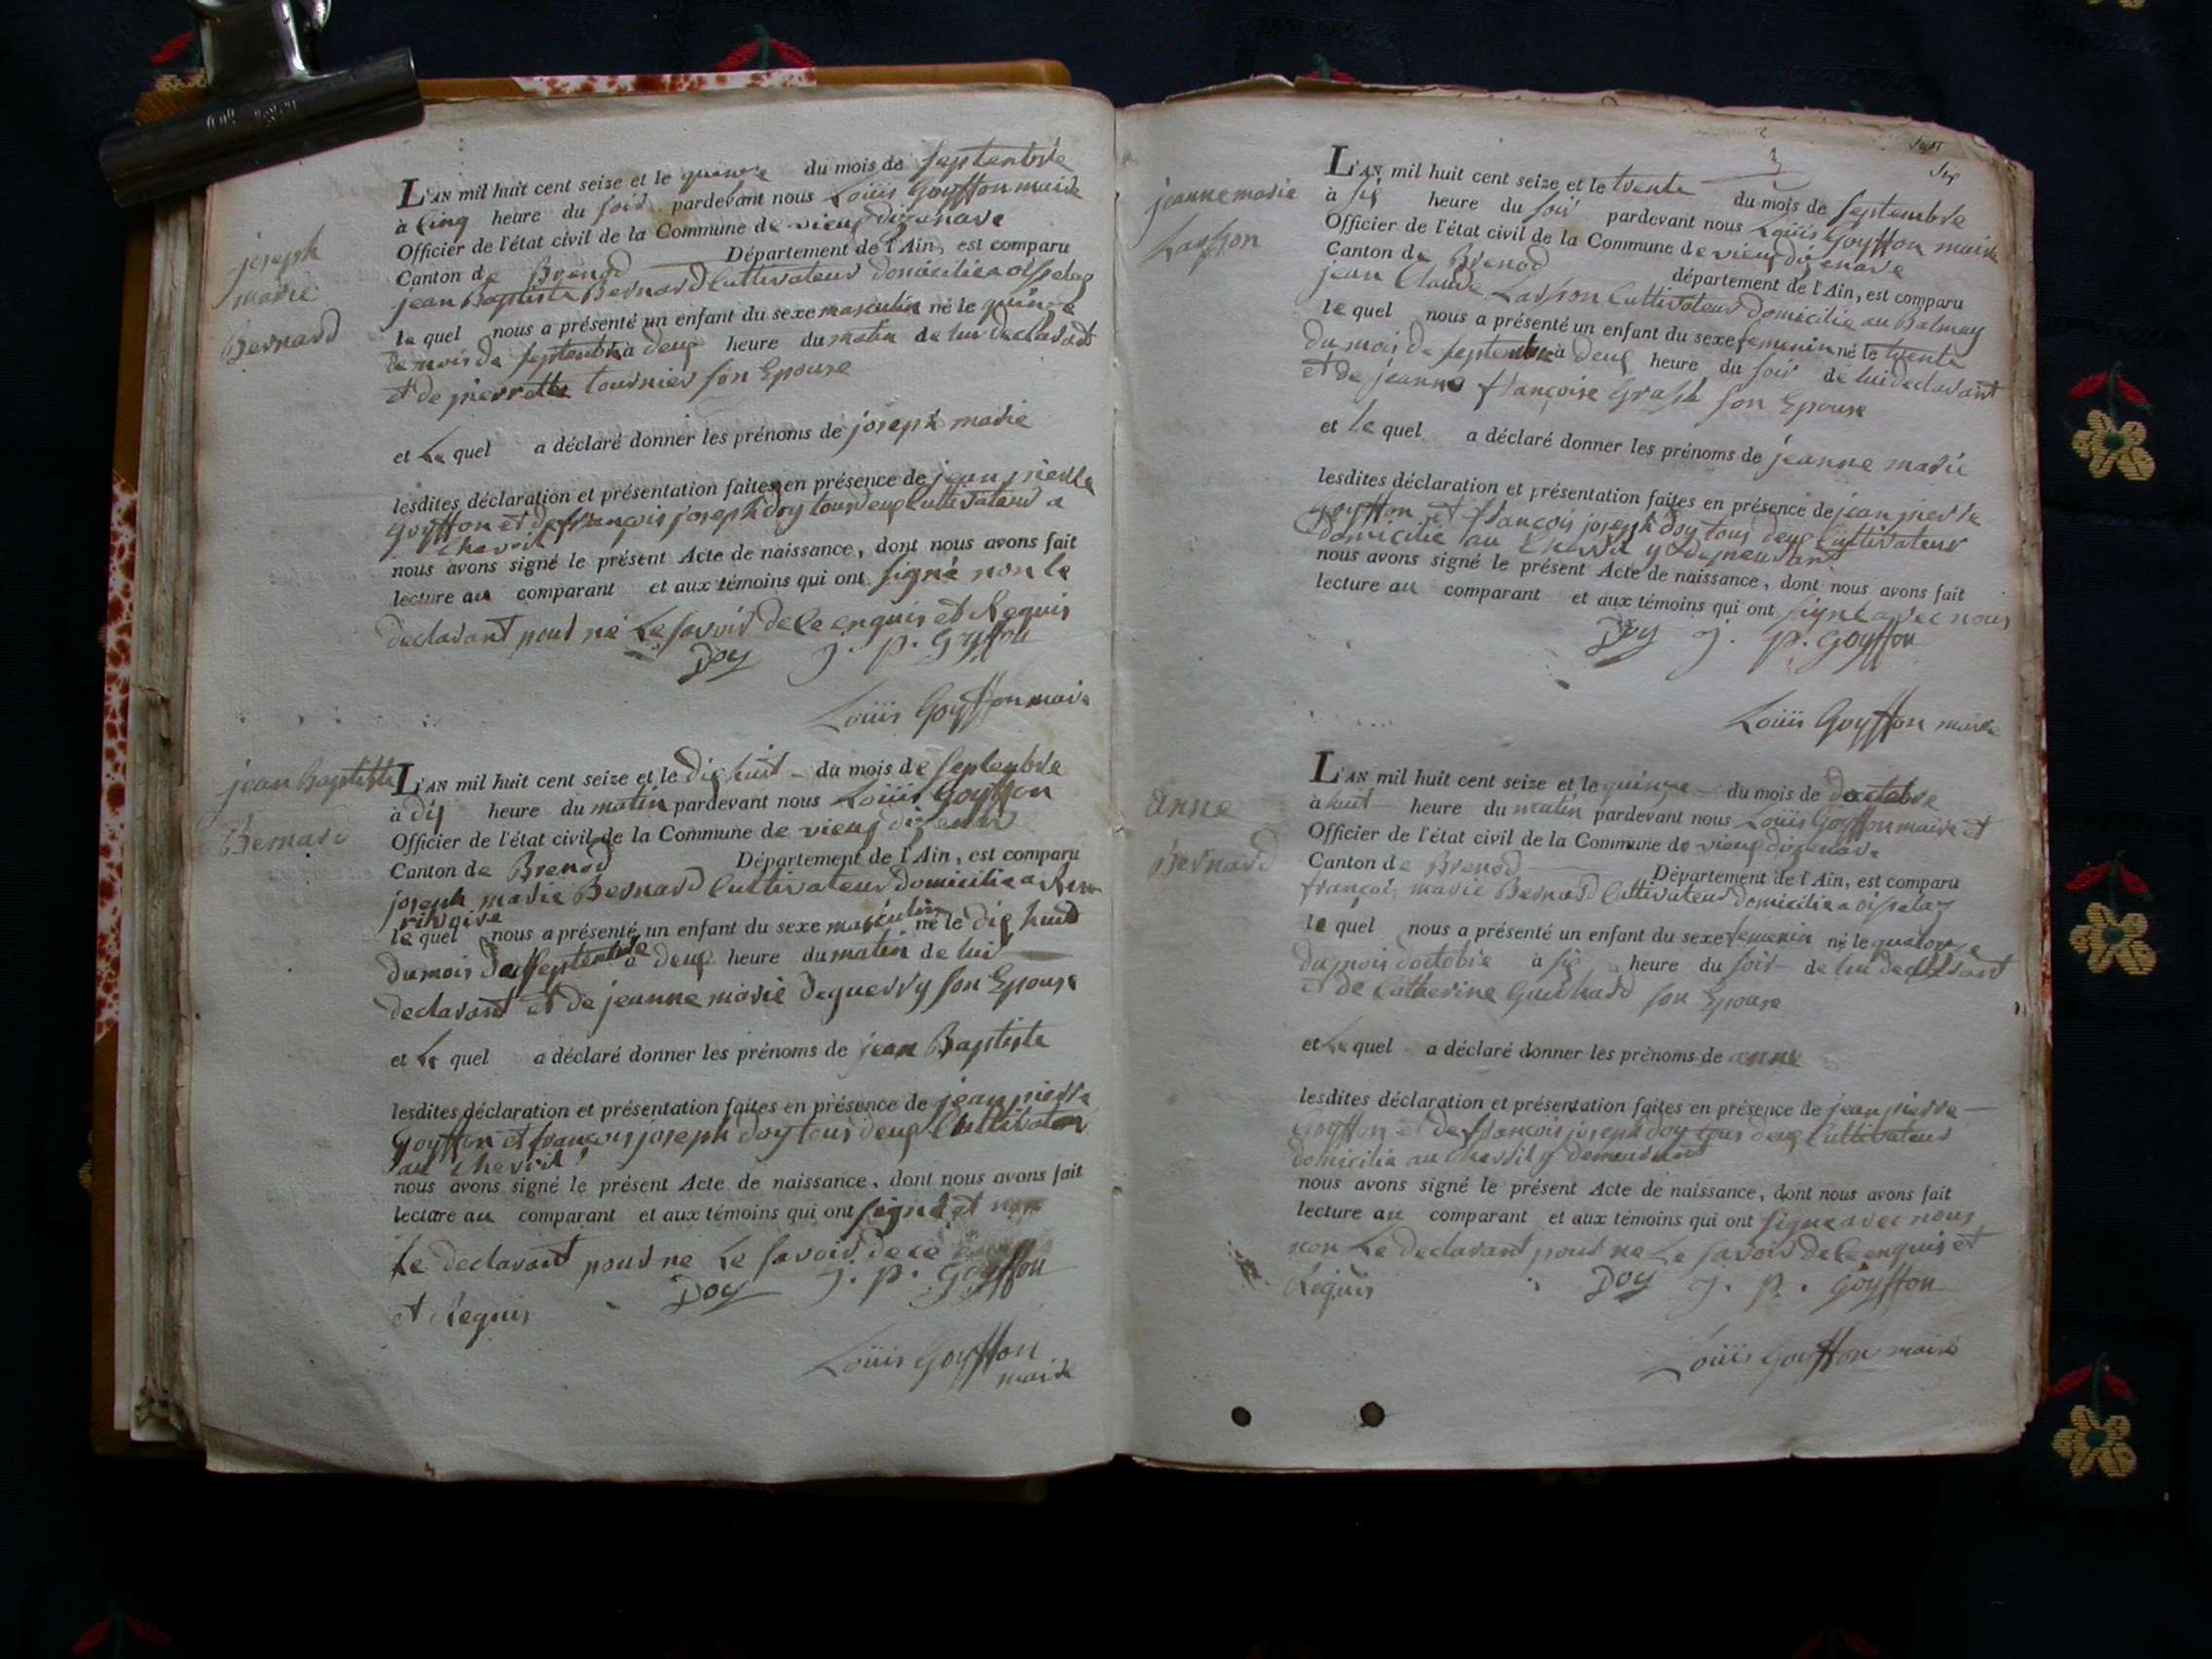 joseph
marie
Bernard
L'AN mil huit cent seize et le quinze du mois de septembre
à Cinq heure du soir pardevant nous Louis Goyffon maire
Officier de l'état civil de la Commune de vieux dizenave
Canton de Brenod Département de l'Ain, est comparu
jean Baptiste Bernard Cultivateur domicilie a oisselaz
le quel nous a présenté un enfant du sexe masculin né le quinze
du mois de septembre à deux heure du matin de lui declarant
et de pierrette tournier son Epouse
et Le quel a déclaré donner les prénoms de joseph marie
lesdites déclaration et présentation faites en présence de jean pierre
goyffon et de françois joseph doy tous deux Cultivateur a
Chevril
nous avons signé le présent Acte de naissance, dont nous avons fait
lecture au comparant et aux témoins qui ont signé non le
declarant pour ne Le savoir de Ce enquis et Requis
Doy J. P. Goyffon
Louis Goyffon maire
jean Baptiste
Bernard
L'AN mil huit cent seize et le dix huit du mois de septembre
à dix heure du matin pardevant nous Louis Goyffon
Officier de l'état civil de la Commune de vieux dizenave
Canton de Brenod Département de l'Ain, est comparu
joseph marie Bernard Cultivateur domicilie a
le quel nous a présenté un enfant du sexe masculin né le dix huit
du mois de septembre à deux heure du matin de lui
declarant et de jeanne marie deguerry son Epouse
et Le quel a déclaré donner les prénoms de jean Baptiste
lesdites déclaration et présentation faites en présence de jean pierre
Goyffon et françois joseph doy tous deux Cultivateur
au Chevril
nous avons signé le présent Acte de naissance, dont nous avons fait
lecture au comparant et aux témoins qui ont signé et non
Le declarant pour ne Le savoir de ce
et Requis Doy J. P. Goyffon
Louis Goyffon
maire
3
jeanne marie
Lasson
L'AN mil huit cent seize et le trente du mois de septembre
à six heure du soir pardevant nous Louis Goyffon maire
Officier de l'état civil de la Commune de vieux dizenave
Canton de Brenod département de l'Ain, est comparu
jean Claude Lasson Cultivateur domicilie au Balmay
le quel nous a présenté un enfant du sexe femenin né le trente
du mois de septembre à deux heure du soir de lui declarant
et de jeanne françoise son Epouse
et Le quel a déclaré donner les prénoms de jeanne marie
lesdites déclaration et présentation faites en présence de jean pierre
goyffon et françois joseph doy tous deux Cultivateur
domicilie au Chevril y demeurant
nous avons signé le présent Acte de naissance, dont nous avons fait
lecture au comparant et aux témoins qui ont signé avec nous
Doy J. P. Goyffon
Louis Goyffon maire
anne
Bernard
L'AN mil huit cent seize et le quinze du mois de doctobre
à huit heure du matin pardevant nous Louis Goyffon maire et
Officier de l'état civil de la Commune de vieux dizenave
Canton de Brenod Département de l'Ain, est comparu
françois marie Bernard Cultivateur domicilie a oisselaz
le quel nous a présenté un enfant du sexe femenin né le quatorze
du mois doctobre à six heure du soir de lui declarant
et de Catherine Guichard son Epouse
et Le quel a déclaré donner les prénoms de anne
lesdites déclaration et présentation faites en présence de jean pierre
Goyffon et de françois joseph doy tous deux Cultivateur
domicilie au Chevril y demeurant
nous avons signé le présent Acte de naissance, dont nous avons fait
lecture au comparant et aux témoins qui ont signé avec nous
non Le declarant pour ne Le savoir de Ce enquis et
Requis Doy J. P. Goyffon
Louis Goyffon maire